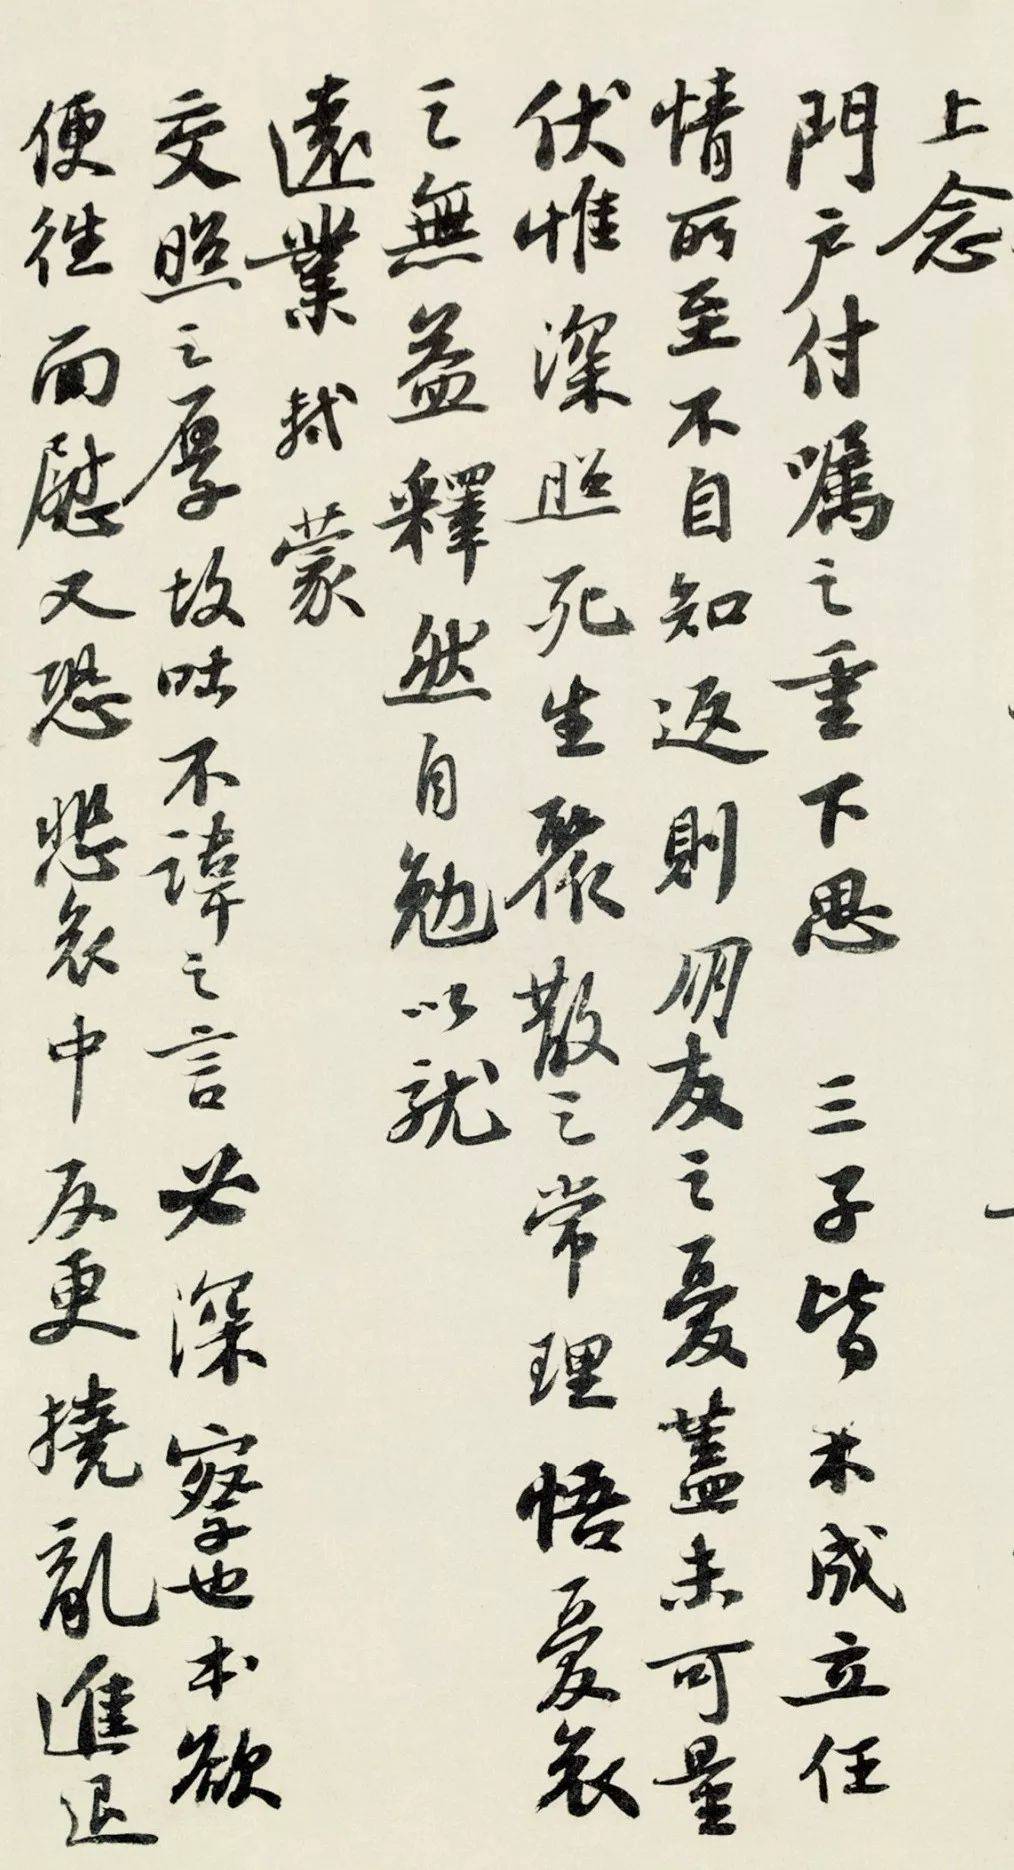 上念
門户付囑之重下思三子皆未成立任
情所至不自知返則朋友之憂蓋未可量
伏惟深照死生聚散之常理悟憂哀
之無益釋然自勉以就
遠業軾蒙
交照之厚故吐不諱之言必深察也本欲
便往面慰又恐悲哀中反更撓亂進退